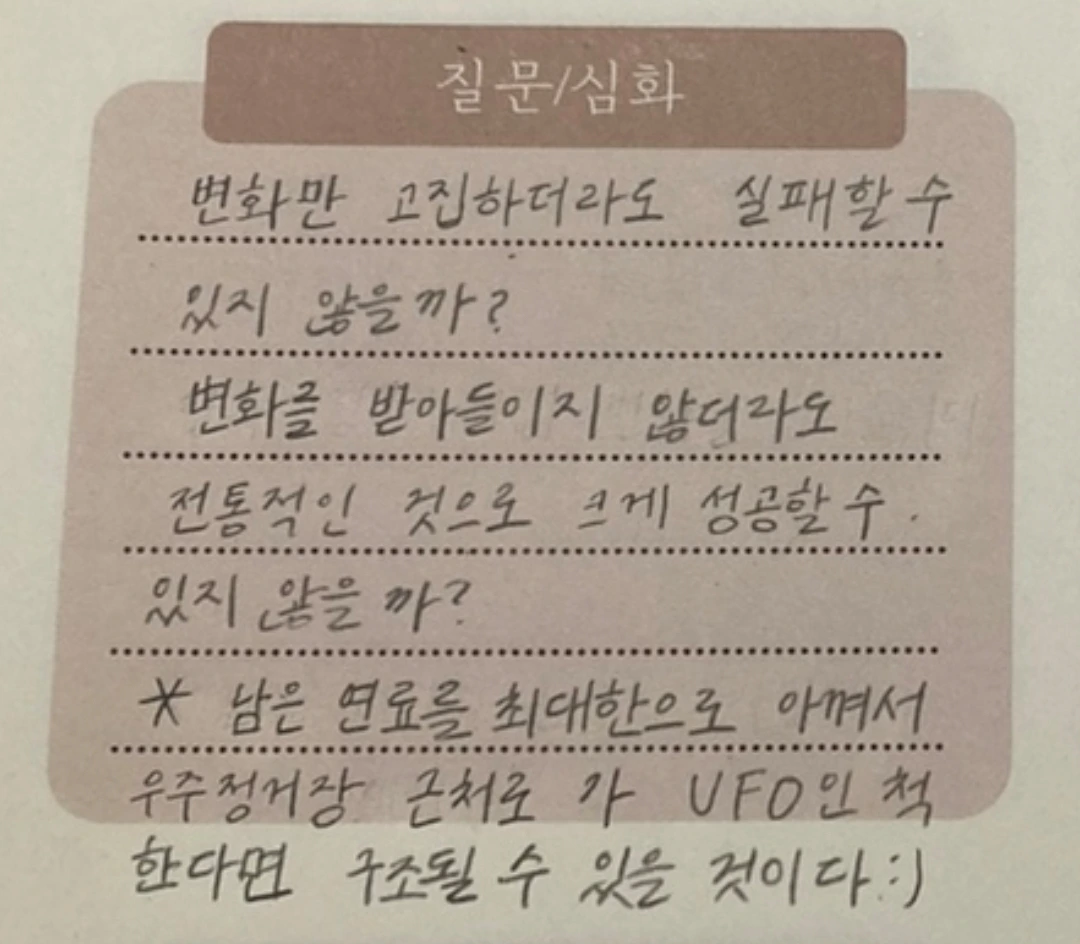 질문/심화
변화만 고집하더라도 실패할 수
있지 않을까?
변화를 받아들이지 않더라도
전통적인 것으로 크게 성공할 수
있지 않을까?
* 남은 연료를 최대한으로 아껴서
우주정거장 근처로 가 UFO인 척
한다면 구조될 수 있을 것이다:)